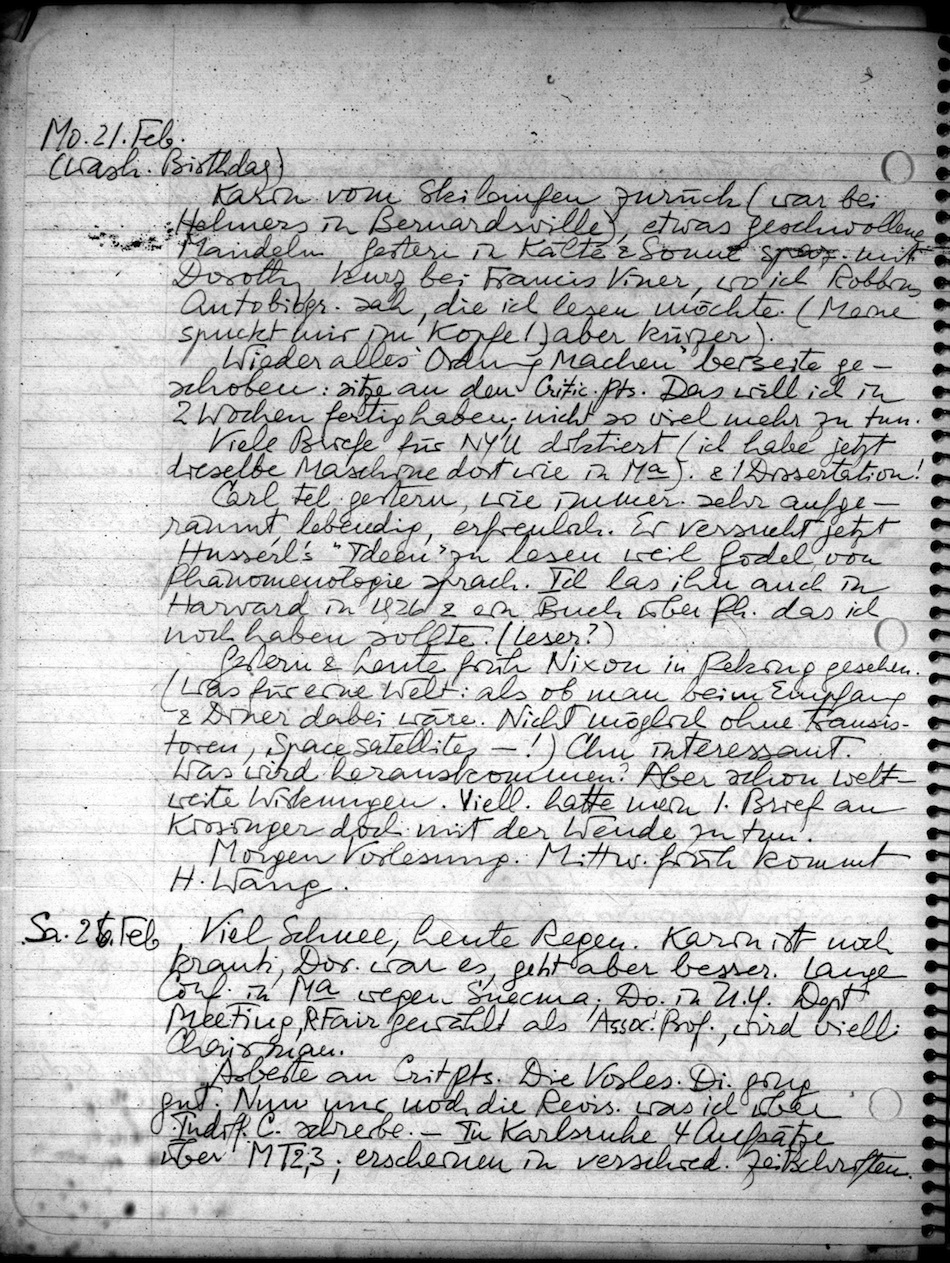 Mo. 21. Feb.
(Wash. Birthday)
Karin vom Skilaufen zurück (war bei
Helmers in Bernardsville), etwas geschwollene
Mandeln. Gestern in Kälte & Sonne mit
Dorothy, kurz bei Francis Viner, wo ich Robbins
Autobiogr. sah, die ich lesen möchte. (Meine
spuckt mir im Kopfe! aber kürzer).
Wieder alles "Ordnung Machen" beiseite ge-
schoben: sitze an den Critic. pts. Das will ich in
2 Wochen fertig haben. nicht so viel mehr zu tun.
Viele Briefe für NYU diktiert (ich habe jetzt
dieselbe Maschine dort wie in Ma). & 1 Dissertation!
Carl Fel. gestern, wie immer sehr aufge-
räumt, lebendig, erfreulich. Er versucht jetzt
Husserl's "Ideen" zu lesen weil Gödel von
Phänomenologie sprach. Ich las ihn auch in
Harvard in 1926 & ein Buch über Ph. das ich
noch haben sollte. (Leser?)
Gestern & heute früh Nixon in Peking gesehen.
(Was für eine Welt: als ob man beim Empfang
& Diner dabei wäre. Nicht möglich ohne Transis-
toren, Space Satellites –!) Chu interessant.
Was wird herauskommen? Aber schon welt-
weite Wirkungen. Viell. hatte mein 1. Brief an
Kissinger doch mit der Wende zu tun!
Morgen Vorlesung. Mittw. früh kommt
H. Wang.
Sa. 26. Feb. Viel Schnee, heute Regen. Karin ist noch
krank, Dor. war es, geht aber besser. Lange
Conf. in Ma wegen Snecma. Do. in N.Y. Dept
Meeting, R Fair gewählt als Assoc. Prof., wird viell.
Chairman.
Arbeite an Crit pts. Die Vorles. Di. ging
gut. Nun nur noch die Revis. was ich über
Indiff. C. schreibe. – In Karlsruhe 4 Aufsätze
über MT2,3; erscheinen in verschied. Zeitschriften.